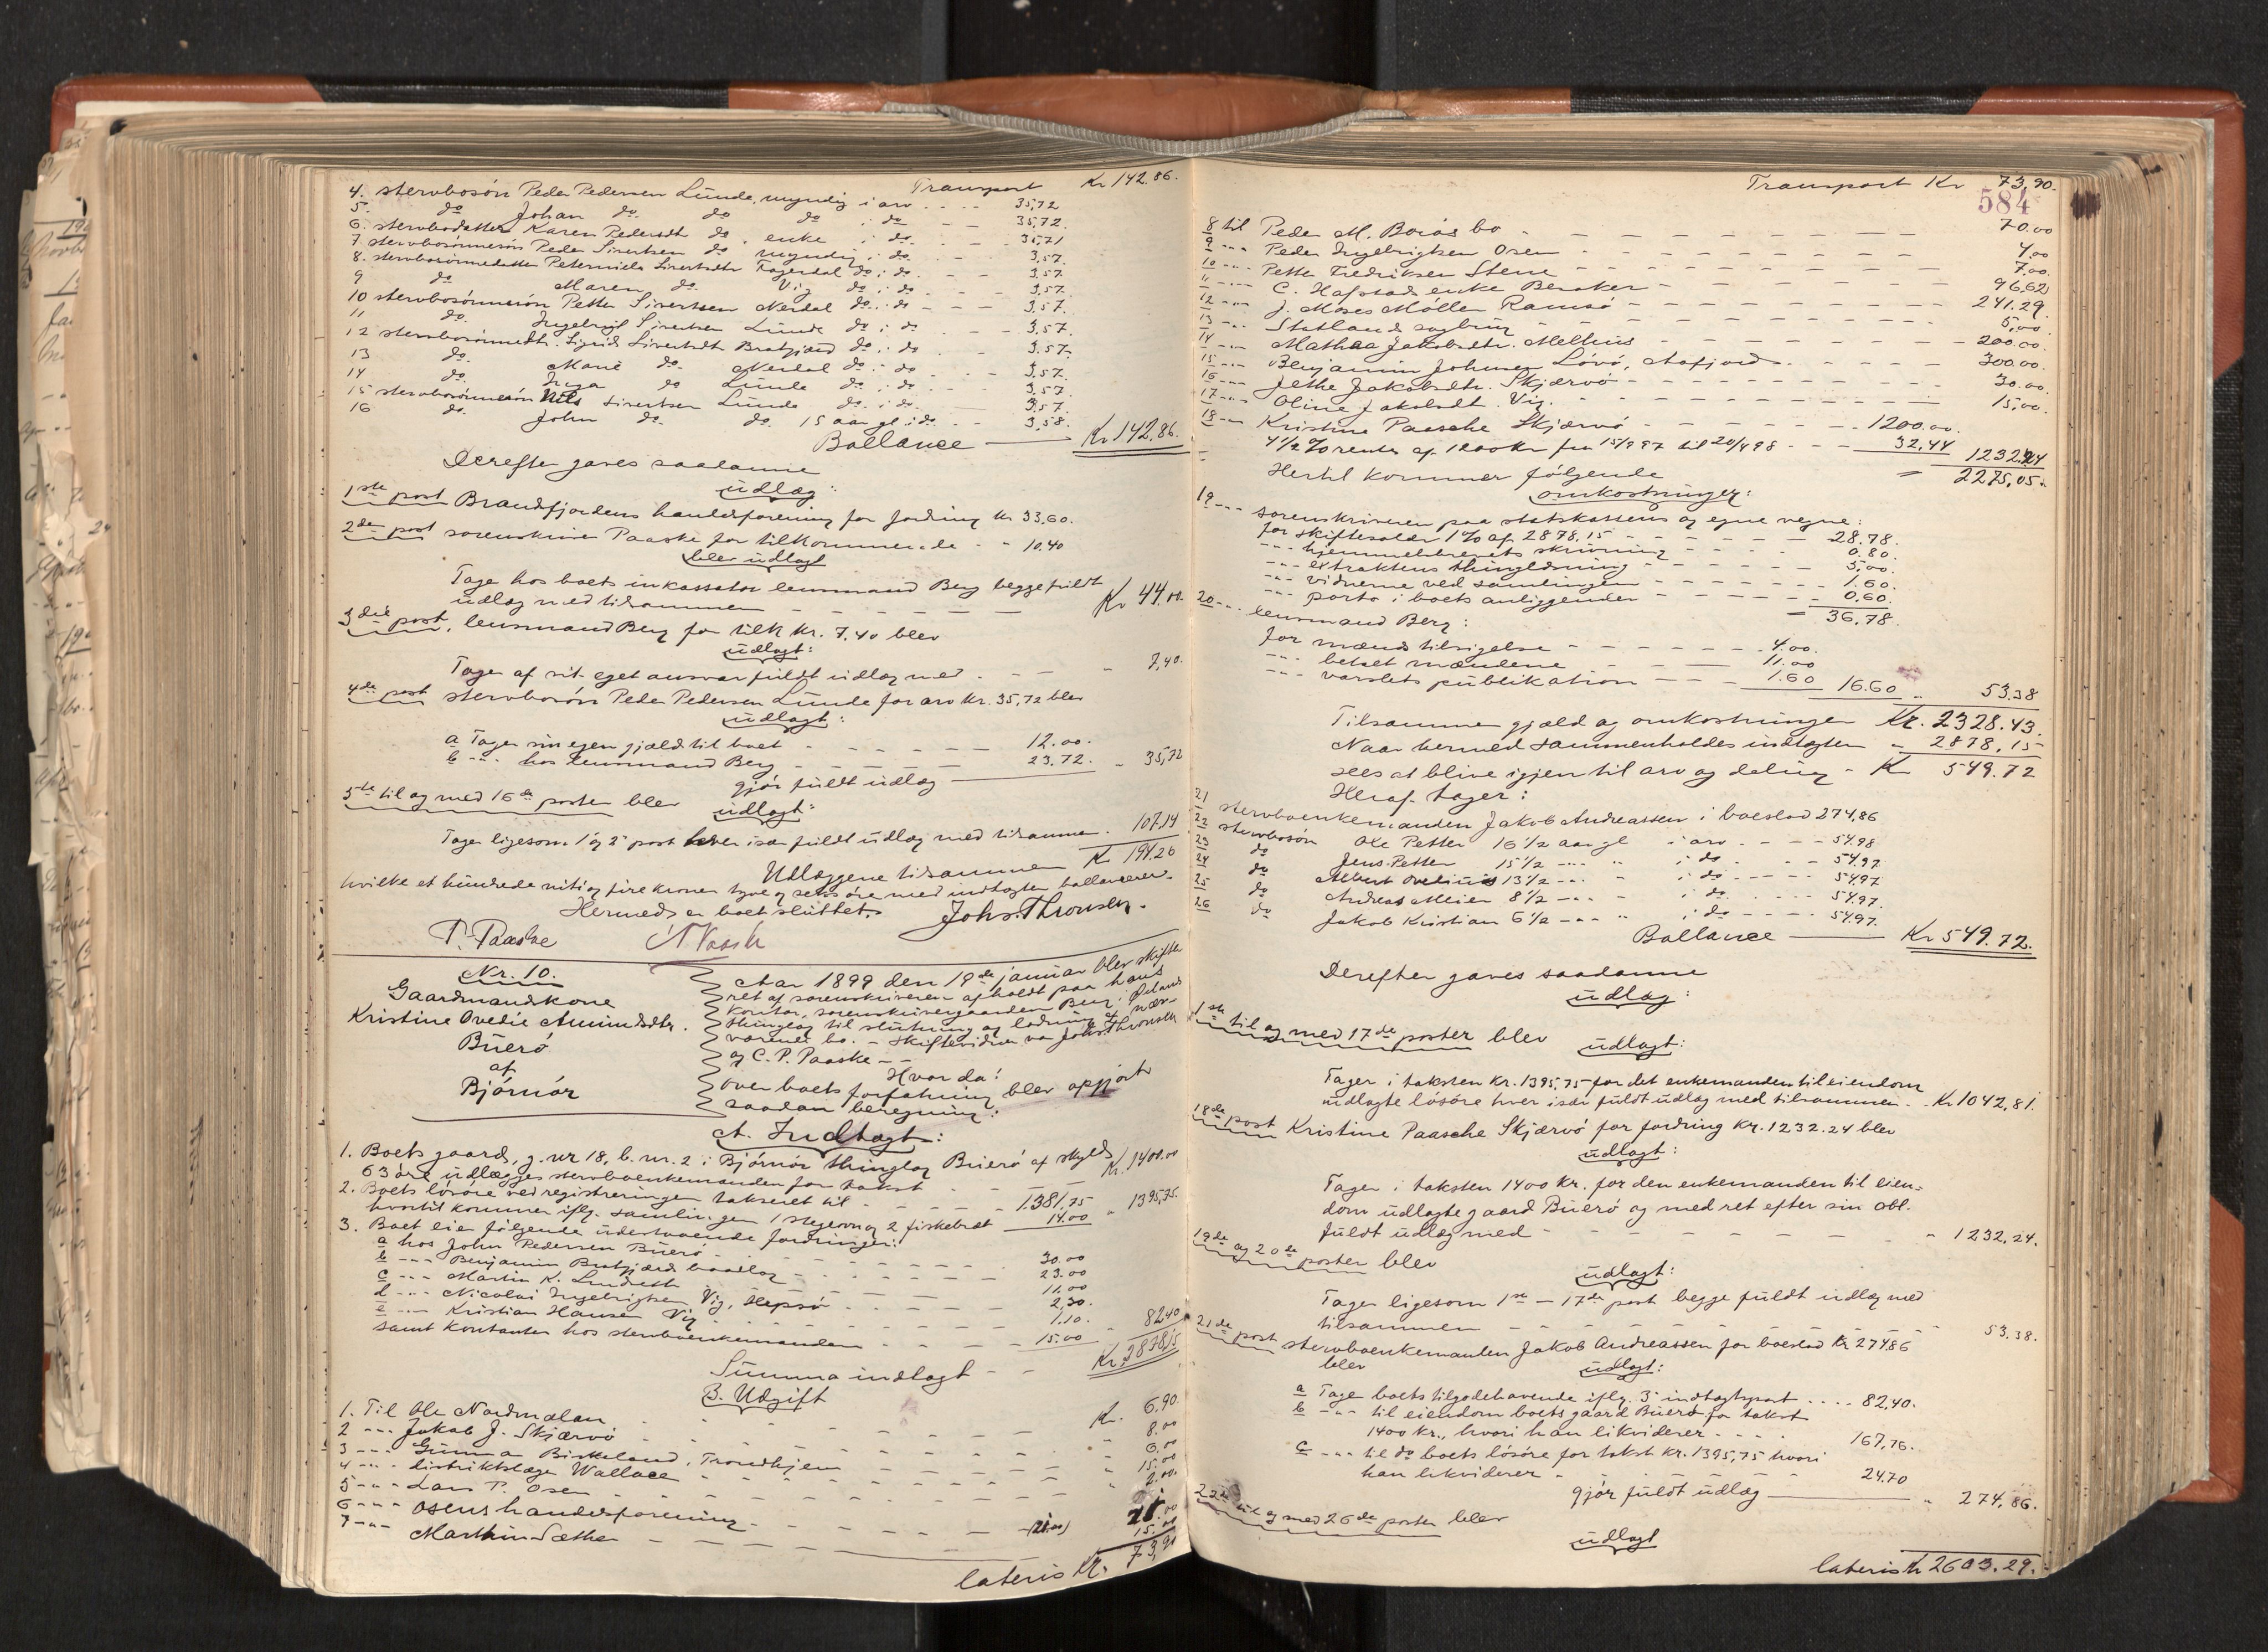 Transport Kr 142.86.
4. stervbosön Peder Pedersen Lunde, myndig i arv . . . . 35,72
5. do Johan do do do i do - - 35,72.
6. stervbodatter Karen Pedersdtr do, enke i do. - - 35,71
7 stervbosönnesön Peder Sivertsen do myndig i do. - - 3,57.
8. stervbosönnedatter Peternida Sivertsdtr Fagerdal do i do - - 3,57.
9 do Maren do. Vig do i do - - 3,57.
10 stervbosönnesön Petter Sivertsen Nerdal do i do - - 3,57.
11 do. Ingebrigt Sivertsen Lunde do i do - - 3,57.
12 stervbosönnedtr. Sigrid Sivertsdtr Bratgjærd do i do - 3,57.
13 do. Marie do. Nerdal do i do - - 3,57.
14 do. Inga do Lunde do i do - - 3,57.
15 stervbosönnesön Nils Sivertsen Lunde do i do - - 3,57.
16 do. John do. do. 15 aar gl i do. - - 3,58.
Ballance Kr 142,86.
Derefter gaves saadanne
udlæg:
1ste post Brandsfjordens handelsforening for fordring kr 33,60.
2den post sorenskriver Paaske for tilkommende - " 10,40
blev udlagt
Tager hos boets inkassator lensmand Berg begge fuldt
udlæg med tilsammen - - - - - Kr 44,00.
3die post, lensmand Berg for tilk kr. 7,40 blev
udlagt:
Tager af sit eget ansvar fuldt udlæg med - - - " 7,40.
4de post stervbosön Peder Pedersen Lunde for arv kr. 35,72 blev
udlagt:
a Tager sin egen gjæld til boet - - - - - 12.00.
b -"- hos lensmand Berg - - - - - 23.72. " 35,72
gjör fuldt udlæg
5te til og med 16de poster blev
udlagt:
Tager ligesom 1 og 2 post hver især fuldt udlæg med tilsammen . 107.14
Udlæggene tilsammen Kr 194.26
hvilke et hundrede nitiog fire kroner tyve og seks öre med indtægten ballancerer.
Hermed er boet sluttet.
Johs. Thronsen.
P. Paaske
Nr. 10.
Gaardmandskone
Kristine Ovedie Amundsdtr.
Buerö
af
Björnör
Aar 1899 den 19de januar blev skifte
ret af sorenskriveren afholdt paa hans
kontor, sorenskrivergaarden Berg i Ørlands
thinglag til slutning og lodning af nær-
værende bo. - Skiftevidner var Johs. Thronsen
og C. P. Paaske - -
Hvor da!
over boets forfatning blev opgjort
saadan beregning:
A. Indtægt:
1. Boets gaard, g. nr 18, b. nr. 2 i Björnör thinglag Buerö af skyld
63 öre udlægges stervboenkemanden for takst - - Kr. 1400.00
2. Boets lösöre ved registreringen takseret til - - - 1.381,75
hvortil kommer iflg. samlingen 1 stegeovn og 2 fiskebræt 14.00 " 1395,75.
3. Boet eier fölgende udestaaende fordringer:
a hos John Pedersen Buerö - - - - - 30.00
b -"- Benjamin Bratgjærds baadlag - - - - 23.00
c -"- Martin K. Lindseth - - - - 11.00
d -"- Nicolai Ingebrigtsen Vig, Hepsö - - - - 2,30.
e -"- Kristian Hansen Vig - - - - 1.10.
samt kontanter hos stervboenkemanden - - - 15.00 " 82.40
Summa indtægt - - Kr. 2878,15.
B. Udgift
1. Til Ole Nordmælan - - - Kr. 6.90.
2 -"- Jakob J. Skjærvö - - - " 8.00
3 -"- Gunnar Birkeland, Trondhjem - - - " 6.00
4 -"- distriktslæge Wallace - - - " 15.00
5 -"- Lars P. Osen - - - " 2.00.
6 -"- Osens handelsforening - - - (21.00) 21.00
7 -"- Marthin Sæther - - - 15.00
lateris Kr. 73,90
Transport Kr 73,90.
584
8 til Peder M. Boiås bo - - - 70.00
9 -"- Peder Ingebrigtsen Osen - - - 4,00
10 -"- Petter Fredriksen Stene - - - 7,00.
11 -"- C. Hafstads enke Beraker - - - 96,62
12 -"- J. Moses Möller Ramsö - - - 241,29.
13 -"- Statland sagbrug - - - 5,00
14 -"- Mathea Jakobsdtr. Melhus - - - 200.00.
15 -"- Benjamin Johnsen Lövö, Aafjord - - - 300.00.
16 -"- Jethe Jakobsdtr. Skjærvö - - - 30.00
17 -"- Oline Jakobsdt. Vig. - - - 15,00.
18 -"- Kristine Paasche Skjærvö - - - 1200.00.
4½ % renter af 1200 kr fra 15/9 97 til 20/4 98 - - - 32.44 1232.24
Hertil kommer fölgende = 2275,05.
omkostninger:
19 -"- sorenskriveren paa statskassens og egne vegne:
for skiftesalær 1 % af 2878,15 - - - 28.78.
-"- hjemmelsbrevets skrivning - - - 0.80.
-"- extraktens thinglæsning - - - 5,00.
-"- vidnerne ved samlingen - - - 1.60.
-"- porto i boets anliggender - - - 0.60.
= 36.78.
20 -"- lensmand Berg:
for mænds tilsigelse - - - 4.00.
-"- betalt mændene - - - 11.00
-"- varslets publikation - - - 1.60 16.60 " 53.38
Tilsammen gjæld og omkostninger Kr. 2328.43.
Naar hermed sammenholdes indtægten " 2878,15
sees at blive igjen til arv og deling - Kr 549.72
Heraf tager:
21 stervboenkemanden Jakob Andreassen i boeslod 274,86
22 stervbosön Ole Petter 16½ aar gl i arv - - - 54.98
23 do Jens Petter 15½ -"- " i do - - - 54.97
24 do Albert Ovelius 13½ -"- " i do - - - 54.97
25 do Andreas Meier 8½ -"- " i do - - - 54.97.
26 do Jakob Kristian 6½ -"- " i do - - - 54.97.
Ballance Kr 549.72.
Derefter gaves saadanne
udlæg:
1ste til og med 17de poster blev udlagt:
Tager i taksten kr. 1395,75 for det enkemanden til eiendom
udlagte lösöre hver især fuldt udlæg med tilsammen - Kr 1042,81.
18de post Kristine Paasche Skjærvö for fordring kr. 1232.24 blev
udlagt:
Tager i taksten 1400 kr. for den enkemanden til eien=
dom udlagte gaard Buerö og med ret efter sin obl.
fuldt udlæg med - - - " 1232,24.
19de og 20de poster blev
udlagt:
Tager ligesom 1ste - 17de post begge fuldt udlæg med
tilsammen - - - " 53.38.
21de post stervboenkemanden Jakob Andreassen for boeslod kr 274,86
blev udlagt:
a Tager boets tilgodehavende iflg. 3 indtægtspost .... 82,40.
b -"- til eiendom boets gaard Buerö for takst
1400 kr., hvori han likviderer - - - 167,76.
c -"- til do boets lösöre for takst kr. 1395,75 hvori
han likviderer - - - 24.70
gjör fuldt udlæg " 274,86.
22de til og med 26de poster blev
udlagt
lateris kr 2603.29.